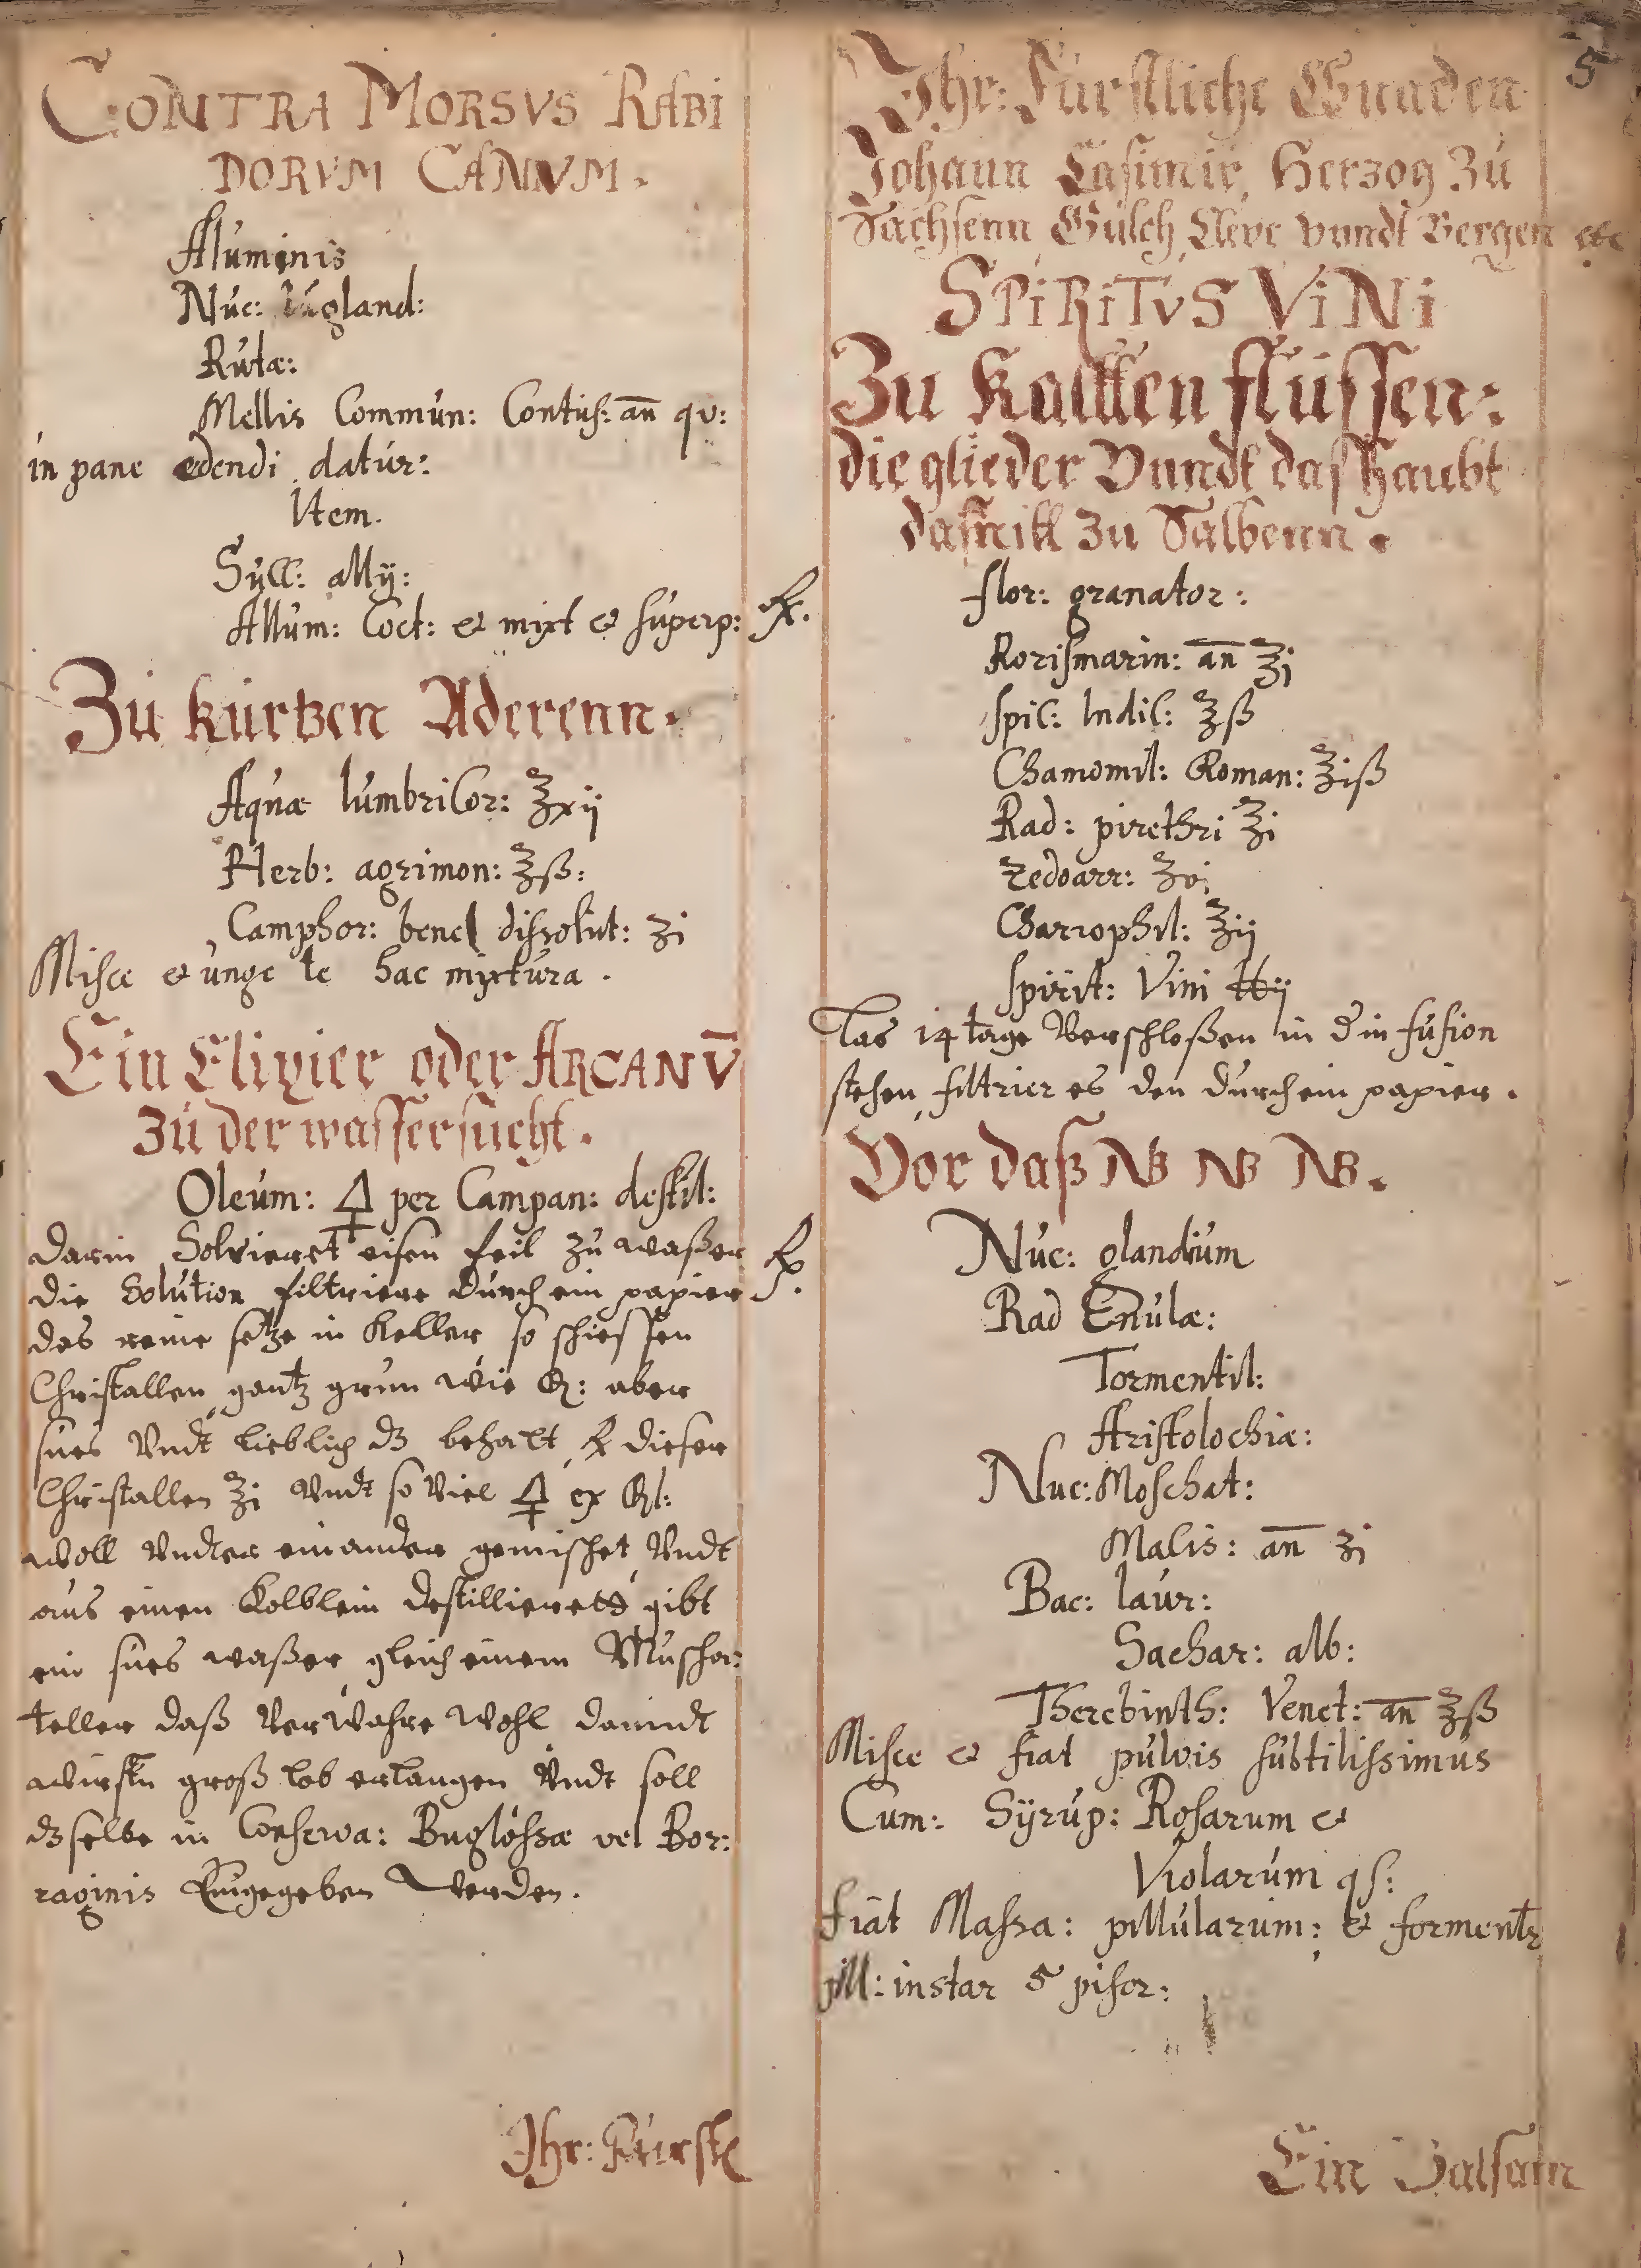 CONTRA MORSVS RABI
DORVM CANVM.
Aluminis
Nuc: Iugland:
Rutæ:
Mellis Commun: Contus: an̄ qv:
in pane edendi datur:
Item.
Syll: allij:
Allum: Coct: & mixt & superp:
Zu kurtzen Aderenn.
Aquæ lumbricor: ℥xij
Herb: agrimon: ℥ß:
Camphor: bene dissolut: ʒi
Misce & unge te hac mixtura.
Ein Elixier oder ARCANV̄
Zu der wassersucht.
Oleum: 🜍 per Campan: destil:
darin Solvieret eisen feil zu waßer
die Solution filtriere durch ein papier
das reine setze in Keller so schiessen
Christallen gantz grun wie : aber
sues Vndt lieblich dz behalt ℞ dieser
Christallen ℥i Vndt so viel 🜍 ex
woll Vndter einander gemischet Vndt
aus einen Kolblein destillieret gibt
ein sues waßer gleich einem Muscha:
teller daß Verwahre wohl damidt
wirstu groß lob erlangen Vndt soll
dzselbe in Conserva: Buglossæ vel Bor:
raginis Eingegeben werden.
Ihr: Fürstl
5
Ihr: Fürstliche Gnaden
Johann Casimir, Herzog Zu
Sachsenn Gülch Cleve vnndt Bergen etc
SPIRITVS VINI
Zu Kaltten flüssen:
die glieder Vnndt das haubt
damitt zu Salbenn.
flor: granator:
Rorismarin: an̄ ℥j
spic: Indic: ℥ß
Chamomil: Roman: ℥iß
Rad: pirethri ℥i
Zedoarr:
Chariophil: ℥ij
spirit: Vini ℔ij
Las 14 tage Verschloßen in d infusion
stehen, filtrier es den durch ein papier.
Vor daß NB NB NB.
Nuc: glandium
Rad Enulæ:
Tormentil:
Aristolochiæ:
Nuc: Moschat:
Macis: an̄ ʒi
Bac: laur:
Sachar: alb:
Therebinth: Venet: an̄ ℥ß
Misce & fiat pulvis subtilissimus
Cum: Syrup: Rosarum &
Violarum qs:
fiat Massa: pillularum: & forment
pill: instar 5 pisor:
Ein Balsam